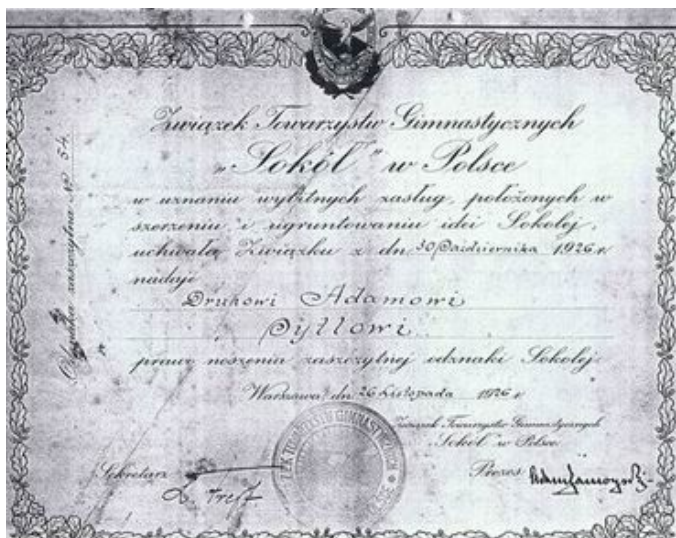 Związek Towarzystw Gimnastycznych
„Sokół" w Polsce
w uznaniu wybitnych zasług, położonych w
szerzeniu i ugruntowaniu idei Sokolej,
uchwałą Związku z dn. 30 Października 1926 r.
nadaje
Druhowi Adamowi
Sydlowi
prawo noszenia zaszczytnej odznaki Sokolej
Warszawa, dn. 26 Listopada 1926 r.
Związek Towarzystw Gimnastycznych
„Sokół" w Polsce
Sekretarz
Prezes
Odznaka zaszczytna No 54